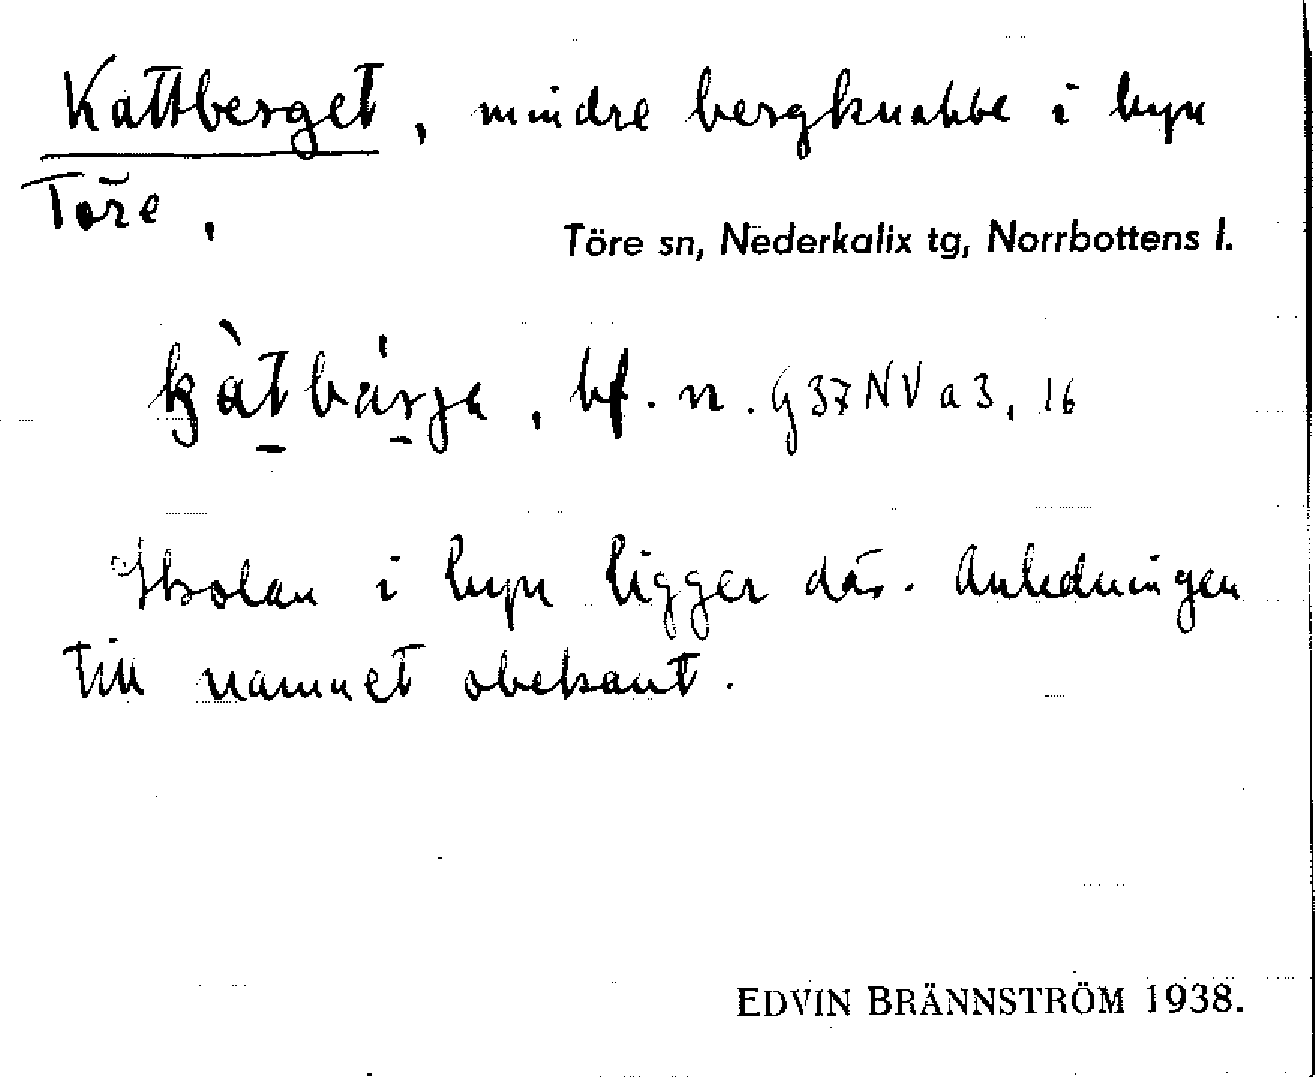 Kattberget, mindre bergknabbe i byn
Töre,
Töre sn, Nederkalix tg, Norrbottens l.
kàtbárja, bf. n. G37NVa3, 16
Skolan i byn ligger där. Anledningen
till namnet obekant.
EDVIN BRÄNNSTRÖM 1938.